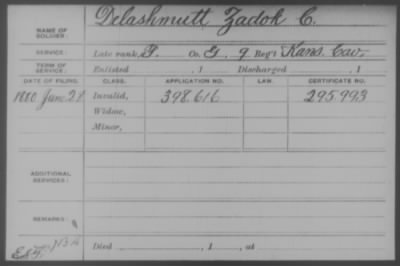 NAME OF SOLDIER: Delashmutt Zadok C.
SERVICE: Late rank, P. Co. G, 9 Reg't Kans. Cav.
TERM OF SERVICE: Enlisted , 1 Discharged , 1
DATE OF FILING. CLASS. APPLICATION NO. LAW. CERTIFICATE NO.
1880 June 29 Invalid, 398.616 295.993
Widow,
Minor,
ADDITIONAL SERVICES:
REMARKS:
Died , 1 , at